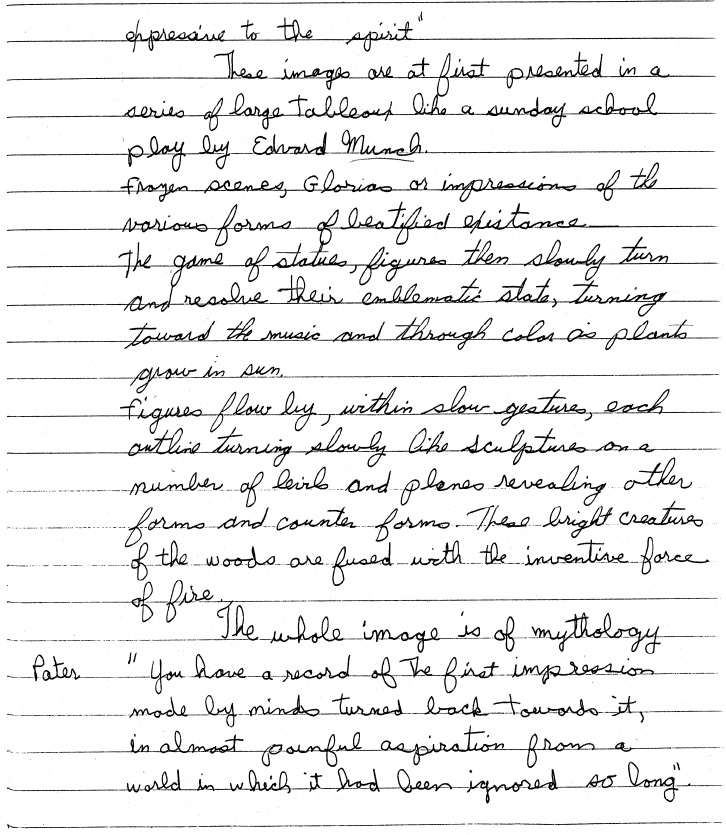 oppressive to the spirit"
These images are at first presented in a
series of large tableaux like a sunday school
play by Edvard Munch.
Frozen scenes, Glorias or impressions of the
various forms of beatified existance
The game of statues, figures then slowly turn
and resolve their emblematic state, turning
toward the music and through color as plants
grow in sun.
Figures flow by, within slow gestures, each
outline turning slowly like sculptures on a
number of levels and planes revealing other
forms and counter forms. These bright creatures
of the woods are fused with the inventive force
of fire.
The whole image is of mythology
Pater " You have a record of the first impression
made by minds turned back towards it,
in almost painful aspiration from a
world in which it had been ignored so long".